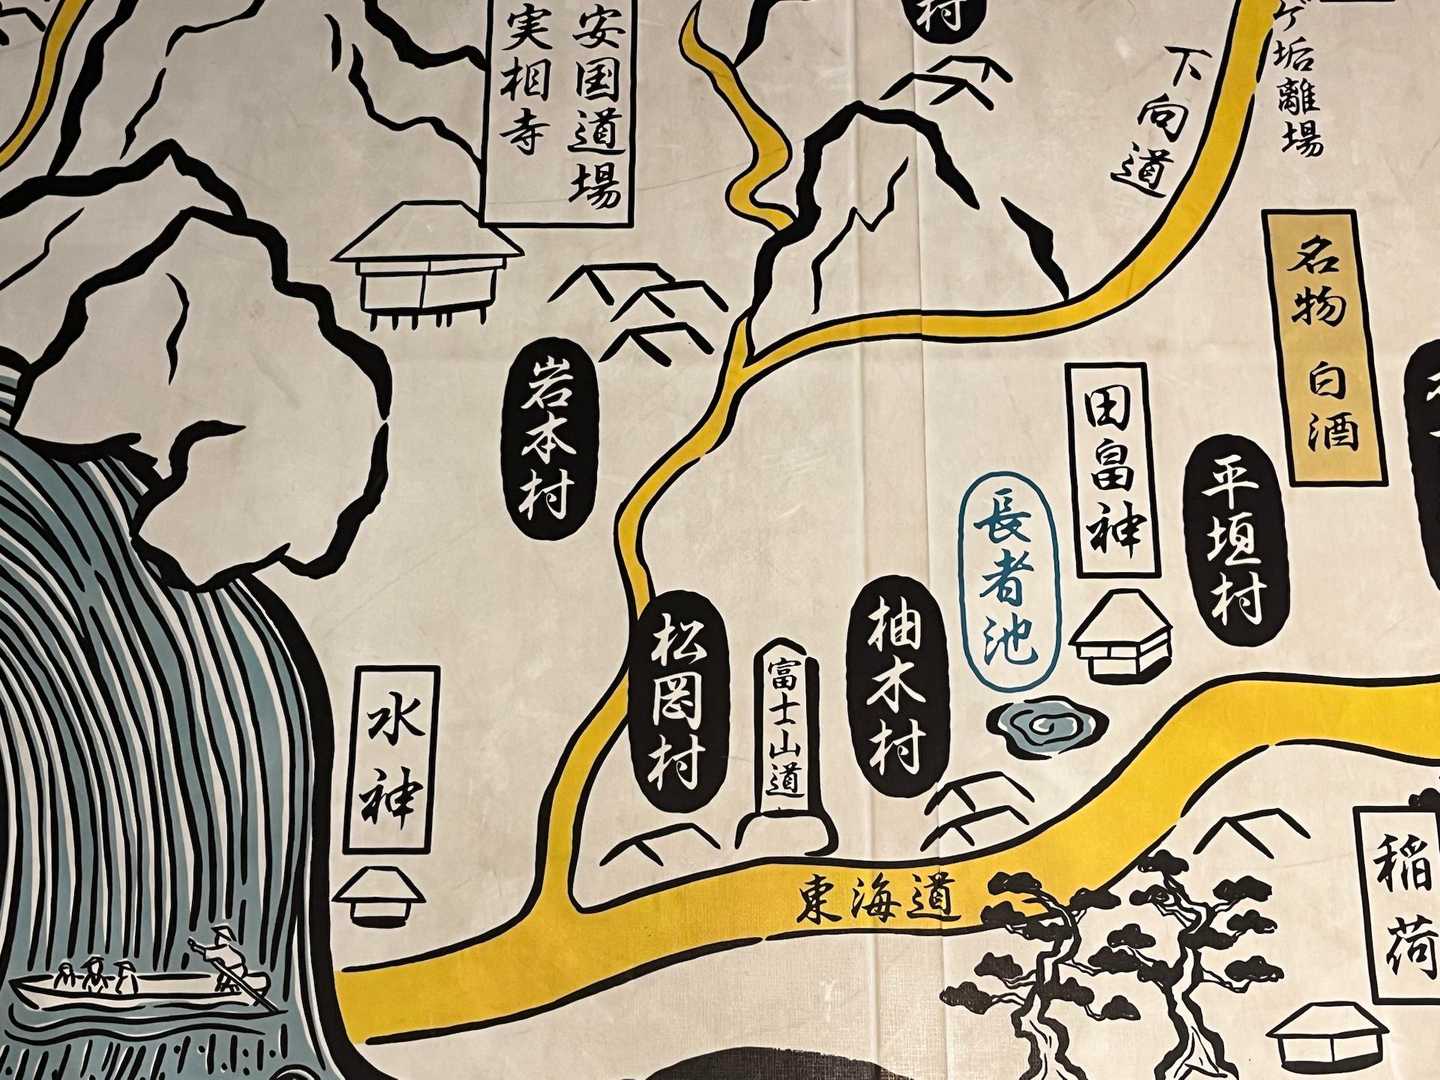 安国道場
実相寺
村
下向道
ゲ垢離場
名物 白酒
岩本村
田畠神
平垣村
長者池
柚木村
富士山道
松岡村
水神
東海道
稲荷